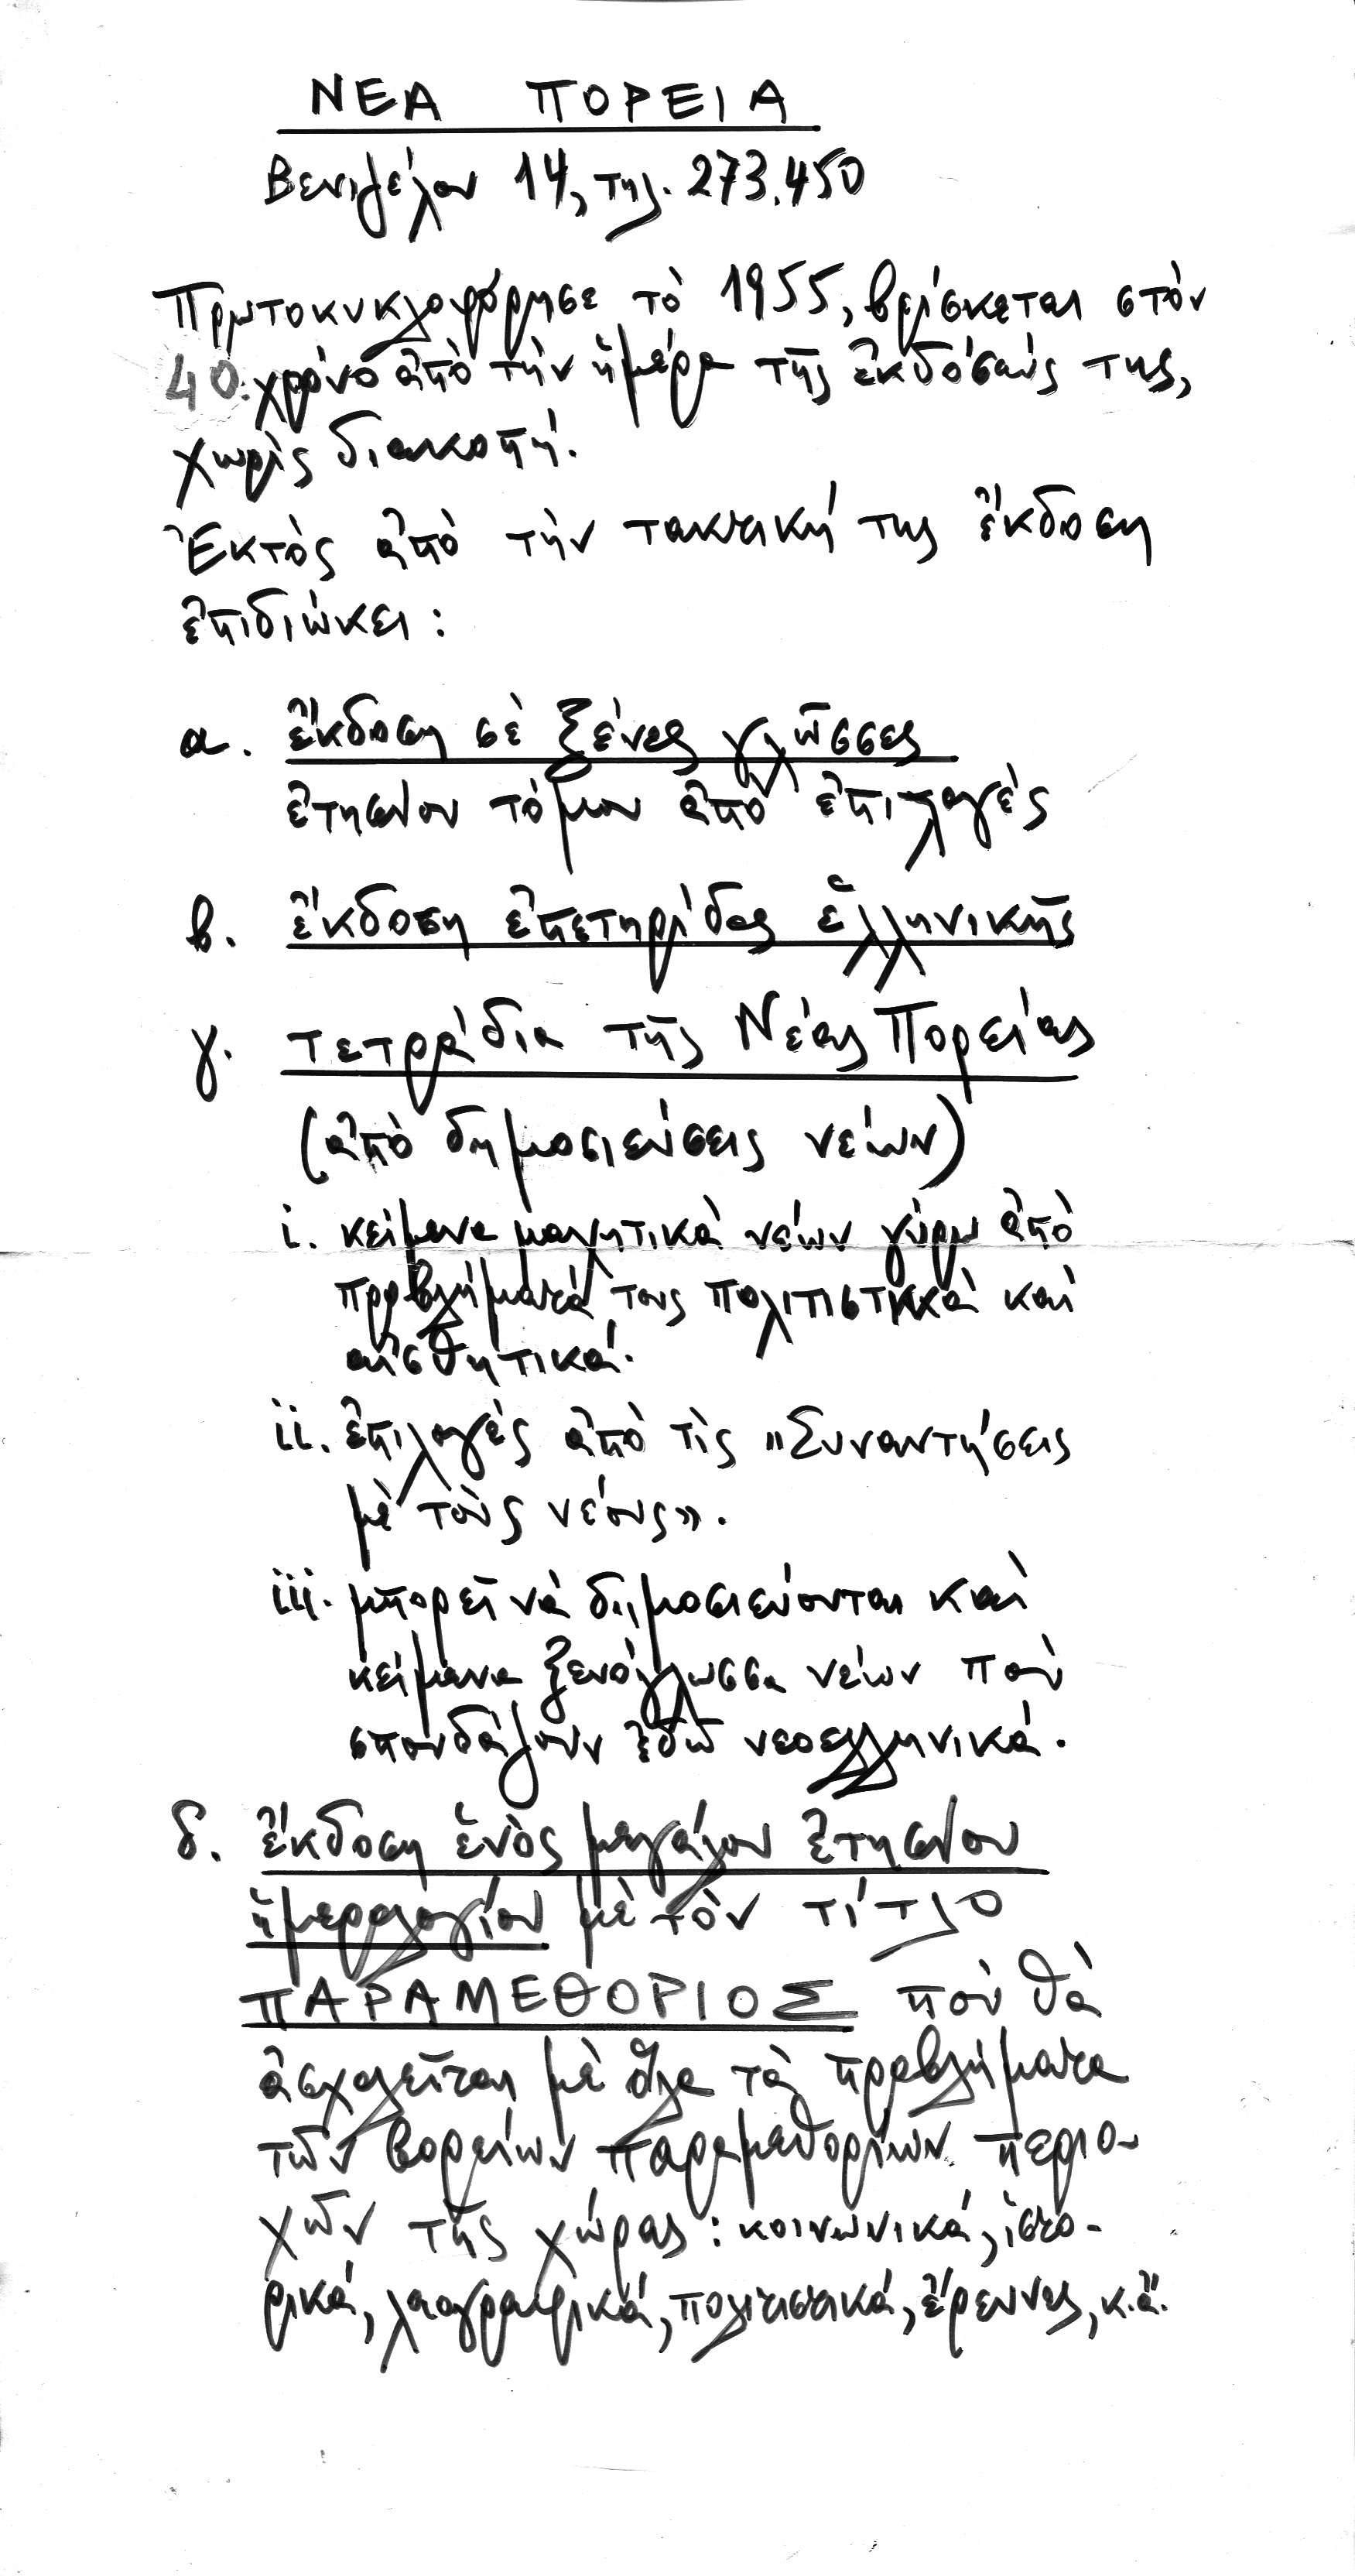 ΝΕΑ ΠΟΡΕΙΑ
Βενιζέλου 14, τηλ. 273.450
Πρωτοκυκλοφόρησε τὸ 1955, βρίσκεται στὸν
40. χρόνο ἀπὸ τὴν ἡμέρα τῆς ἐκδόσεώς της,
χωρὶς διακοπή.
Ἐκτὸς ἀπὸ τὴν τακτική της ἔκδοση
ἐπιδιώκει:
α. ἔκδοση σὲ ξένες γλῶσσες
ἐτησίου τόμου ἀπὸ ἐπιλογές
β. ἔκδοση ἐπετηρίδας ἑλληνικῆς
γ. τετράδια τῆς Νέας Πορείας
(ἀπὸ δημοσιεύσεις νέων)
i. κείμενα μαχητικὰ νέων γύρω ἀπὸ
προβλήματά τους πολιτιστικὰ καὶ
αἰσθητικά.
ii. ἐπιλογὲς ἀπὸ τὶς »Συναντήσεις
μὲ τοὺς νέους».
iii. μπορεῖ νὰ δημοσιεύονται καὶ
κείμενα ξενόγλωσσα νέων ποὺ
σπουδάζουν ἐδῶ νεοελληνικά.
δ. ἔκδοση ἑνὸς μεγάλου ἐτησίου
ἡμερολογίου μὲ τὸν τίτλο
ΠΑΡΑΜΕΘΟΡΙΟΣ ποὺ θὰ
ἀσχολεῖται μὲ ὅλα τὰ προβλήματα
τῶν βορείων παραμεθορίων περιο-
χῶν τῆς χώρας: κοινωνικά, ἱστο-
ρικά, λαογραφικά, πολιτιστικά, ἔρευνες, κ.ἄ.